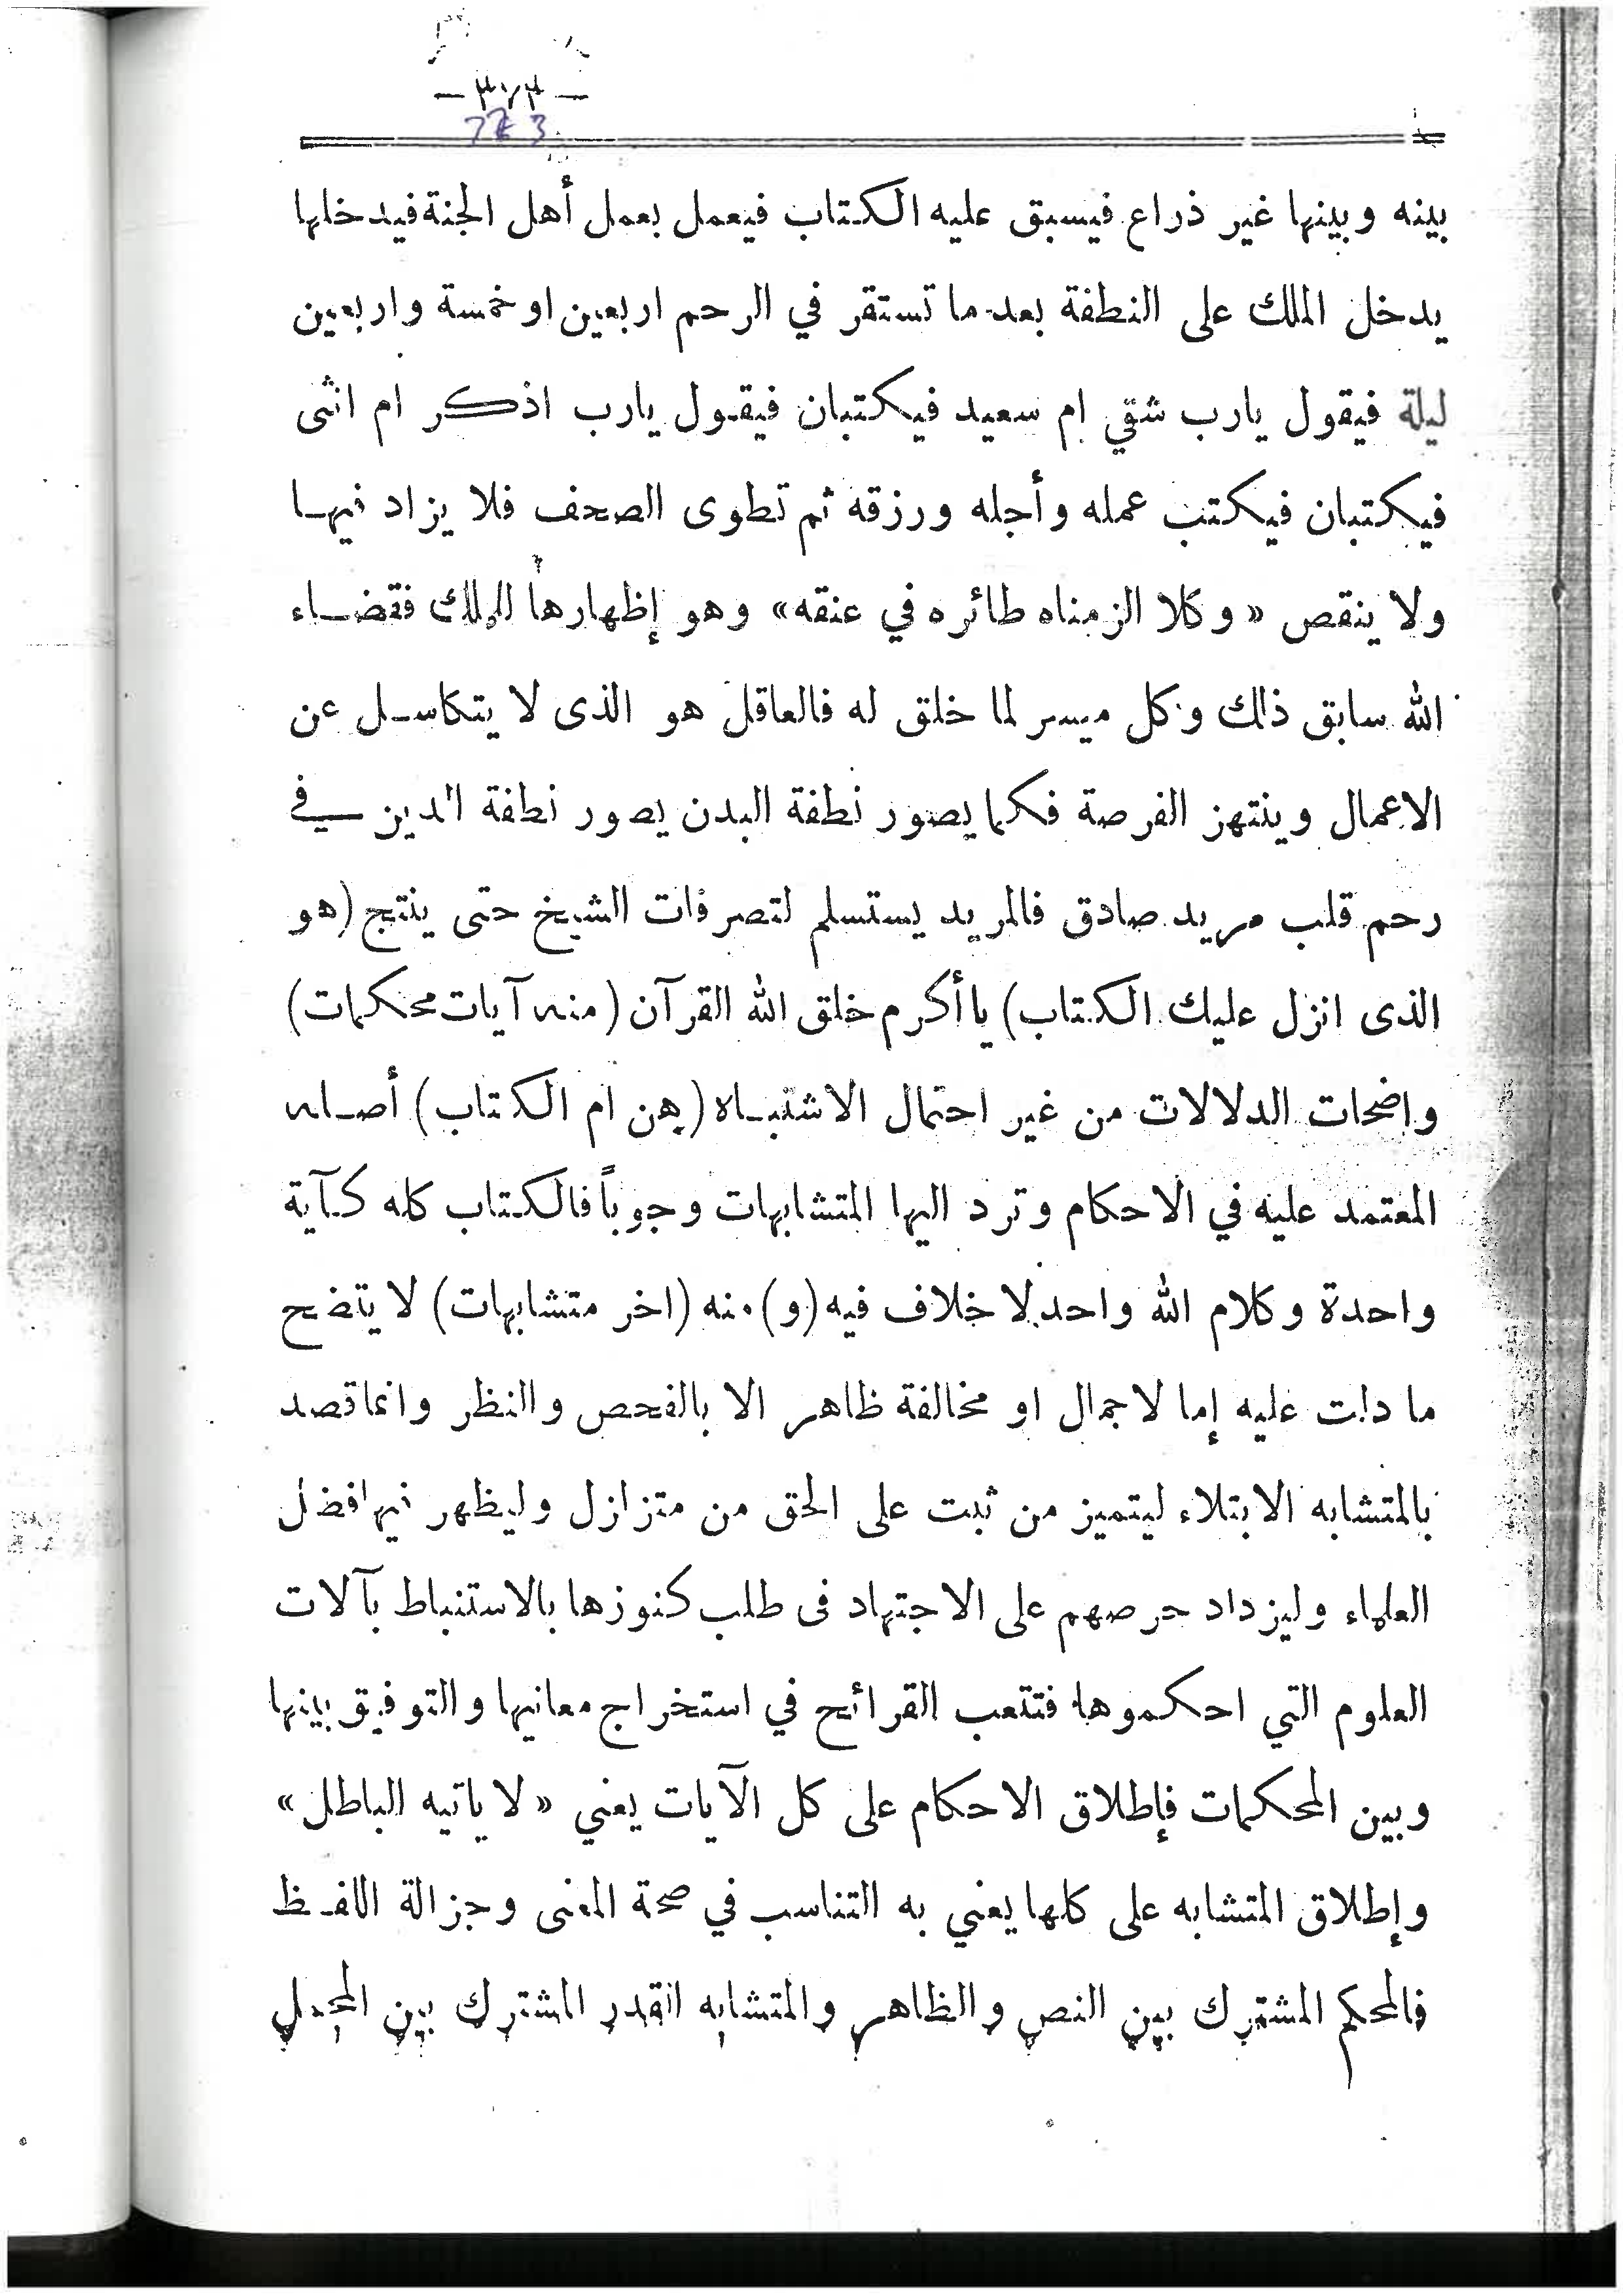 بينه وبينها غير ذراع فيسبق عليه الكتاب فيعمل بعمل أهل الجنة فيدخلها
يدخل الملك على النطفة بعد ما تستقر في الرحم اربعين او خمسة واربعين
ليلة فيقول يارب شقي ام سعيد فيكتبان فيقول يارب اذكر ام انثى
فيكتبان فيكتب عمله وأجله ورزقه ثم تطوى الصحف فلا يزاد فيها
ولا ينقص «وكلا الزمناه طائره في عنقه» وهو إظهارها للملك فقضاء
الله سابق ذلك وكل ميسر لما خلق له فالعاقل هو الذى لا يتكاسل عن
الاعمال وينتهز الفرصة فكما يصور نطفة البدن يصور نطفة الدين في
رحم قلب مريد صادق فالمريد يستسلم لتصرفات الشيخ حتى ينتج (هو
الذى انزل عليك الكتاب) يا أكرم خلق الله القرآن (منه آيات محكمات)
واضحات الدلالات من غير احتمال الاشتباه (هن ام الكتاب) أصله
المعتمد عليه في الاحكام وترد اليها المتشابهات وجوباً فالكتاب كله كآية
واحدة وكلام الله واحد لا خلاف فيه (و) منه (اخر متشابهات) لا يتضح
ما دلت عليه إما لاجمال او مخالفة ظاهر الا بالفحص والنظر وانما قصد
بالمتشابه الابتلاء ليتميز من ثبت على الحق من متزلزل وليظهر فيها فضل
العلماء وليزداد حرصهم على الاجتهاد فى طلب كنوزها بالاستنباط بآلات
العلوم التي احكموها فتتعب القرائح في استخراج معانيها والتوفيق بينها
وبين المحكمات فإطلاق الاحكام على كل الآيات يعني «لا ياتيه الباطل»
وإطلاق المتشابه على كلها يعني به التناسب في صحة المعنى وجزالة اللفظ
فالمحكم المشترك بين النص والظاهر والمتشابه القدر المشترك بين المجمل